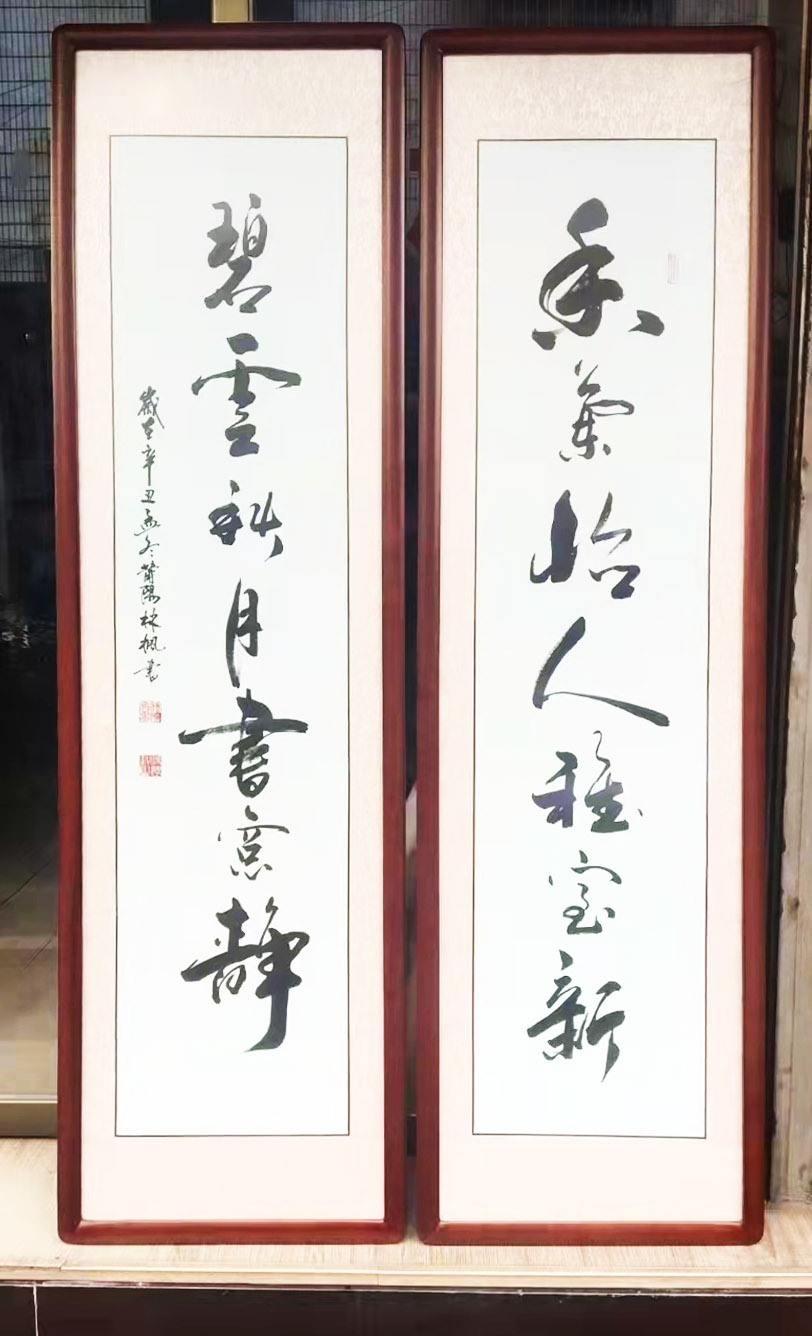 香氣怡人雅室新
碧雲斜月書窗靜
歲在辛丑孟冬莆陽林楓書